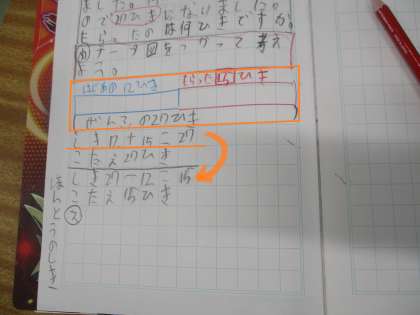 ました。
ので27ひきになりました。
もらったのは何ひきですか。
テープ図をつかって考え
よう。
はじめの12ひき
もらった15ひき
ぜんぶの27ひき
しき 12+15=27
こたえ27ひき
しき 27-12=15
こたえ15ひき
ほんとうのしき